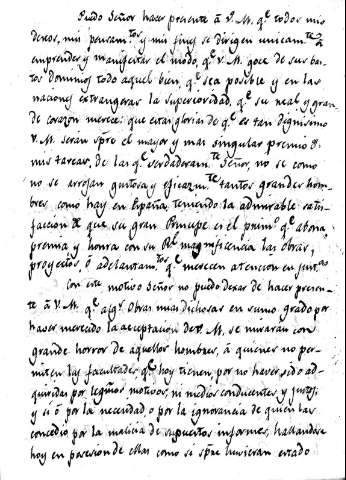 Puedo Señor hacer presente â V. M. qᵉ todos mis
deseos, mis pensamᵗᵒˢ y mis fines se dirigen unicamᵗᵉ â
emprender y manifestar el modo, qᵉ V. M. goce de sus bas-
tos Dominios todo aquel bien qᵉ sea posible y en las
naciones extrangeras la superioridad, qᵉ su real y gran-
de corazon merece: que estas glorias de qᵉ es tan dignisimo
V. M. serán spre el mayor y mas singular premio de
mis tareas, de las qᵉ verdaderamᵗᵉ Señor, no se como
no se arrojan gustosa y eficazmᵗᵉ tantos grandes hom-
bres como hay en España, teniendo la admirable satis-
faccion de que su gran Principe es el primᵒ qᵉ abona,
premia y honra con su Rˡ magnificencia las obras,
proyectos, ô adelantamᵗᵒˢ qᵉ merecen atencion en justᵃ
Con este motivo Señor no puedo dexar de hacer presen-
te â V. M. qᵉ algˢ obras mias dichosas en sumo grado por
haver merecido la aceptacion de V. M. se miraran con
grande horror de aquellos hombres, â quienes no per-
miten las facultades qᵉ hoy tienen, por no haver sido ad-
quiridas por legitimos motivos, ni medios conducentes, y justos,
y si ô por la necedad, o por la ignorancia de quien las
concedio por la malicia de supuestos informes, hallandose
hoy en posesion de ellas como si spre huvieran estado